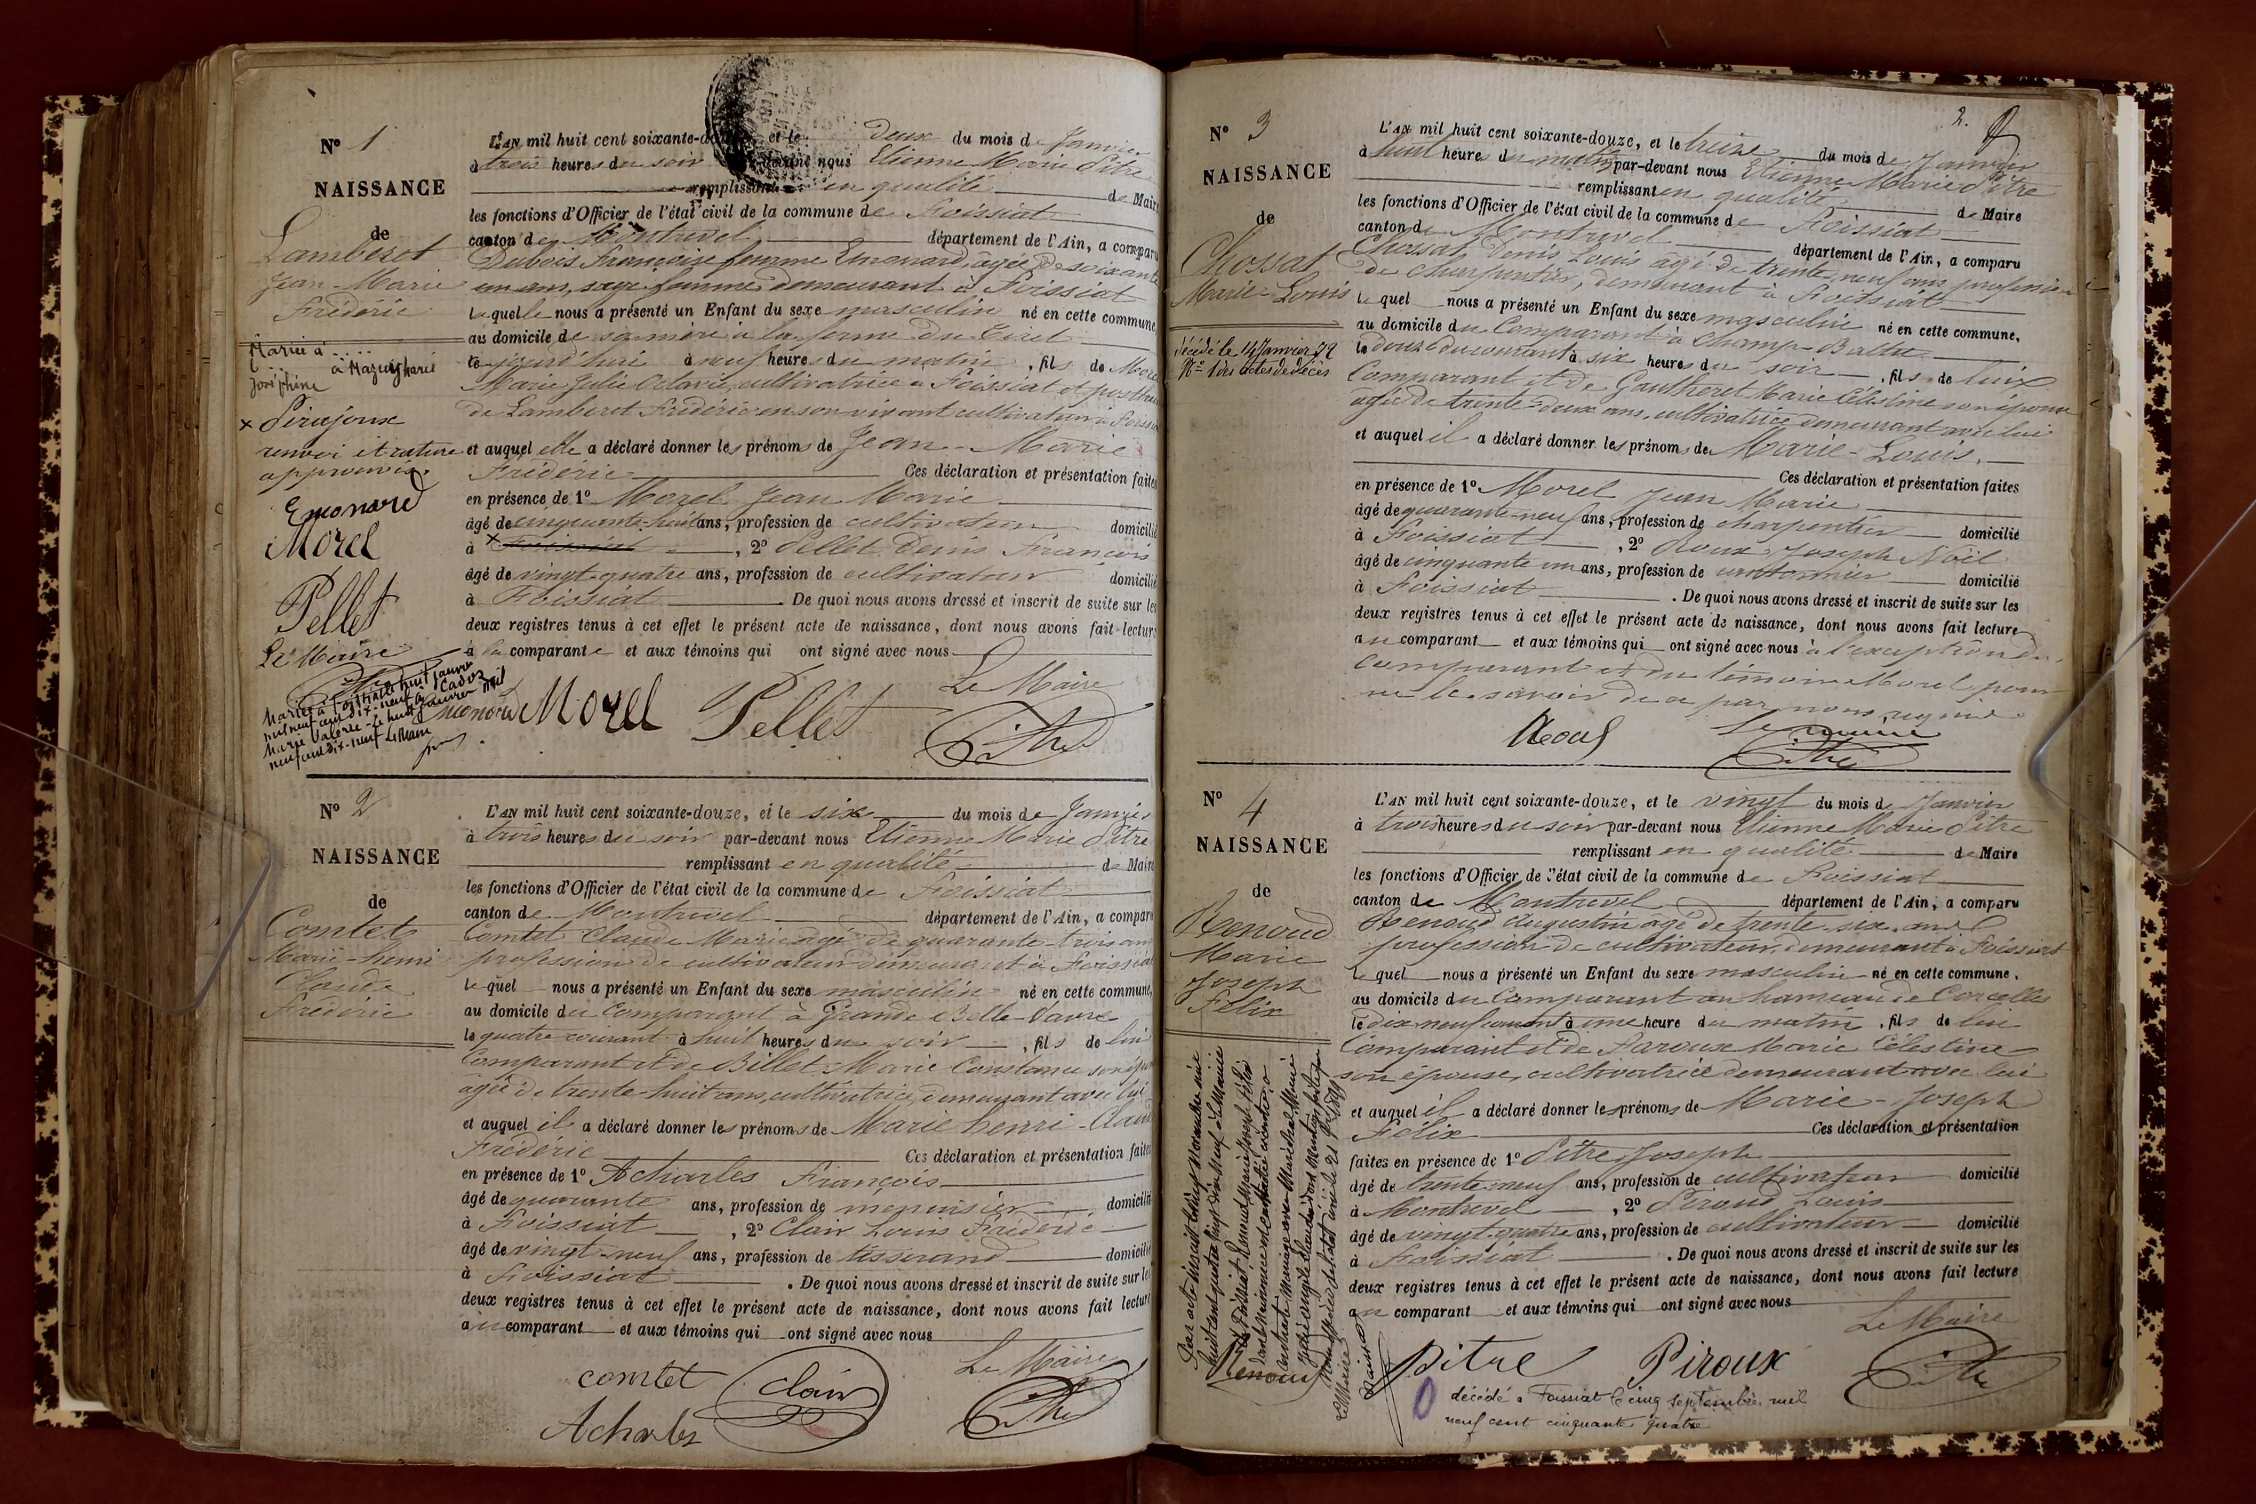 N° 1
NAISSANCE
de
Lamberet
Jean-Marie
Frédéric
Mariée à
à Mazingharié
Joséphine
x Pirajoux
renvoi et rature
approuvés.
Emonard
Morel
Pellet
Le Maire
Pitre
Marié à Foissiat le huit janvier
mil neuf cent dix-neuf à Cadoz
Marie Valérie - le huit janvier mil
neuf cent dix-neuf Le Maire
L'AN mil huit cent soixante-douze et le deux du mois de Janvier
à trois heures du soir par-devant nous Etienne Marie Pitre
remplissant en qualité de Maire
les fonctions d'Officier de l'état civil de la commune de Foissiat
canton de Montrevel département de l'Ain, a comparu
Dubois Françoise femme Emonard, âgée de soixante
un ans, sage femme demeurant à Foissiat
laquelle nous a présenté un Enfant du sexe masculin né en cette commune
au domicile de sa mère à la ferme du
le jourd'hui à neuf heures du matin, fils de Morel
Marie Julie Octavie, cultivatrice à Foissiat et posthume
de Lamberet Frédéric en son vivant cultivateur à Foissiat
et auquel elle a déclaré donner les prénoms de Jean-Marie
Frédéric Ces déclaration et présentation faites
en présence de 1° Morel Jean Marie
âgé de cinquante-huit ans, profession de cultivateur domicilié
à x Foissiat, 2° Pellet Denis François
âgé de vingt-quatre ans, profession de cultivateur domicilié
à Foissiat. De quoi nous avons dressé et inscrit de suite sur les
deux registres tenus à cet effet le présent acte de naissance, dont nous avons fait lecture
à la comparante et aux témoins qui ont signé avec nous
Le Maire
Emonard Morel Pellet Pitre
N° 2
NAISSANCE
de
Comtet
Marie-henri
Claude
Frédéric
L'AN mil huit cent soixante-douze, et le six du mois de Janvier
à trois heures du soir par-devant nous Etienne Marie Pitre
remplissant en qualité de Maire
les fonctions d'Officier de l'état civil de la commune de Foissiat
canton de Montrevel département de l'Ain, a comparu
Comtet Claude Marie âgé de quarante-trois ans
profession de cultivateur demeurant à Foissiat
lequel nous a présenté un Enfant du sexe masculin né en cette commune,
au domicile du Comparant à Grande Belle-Vavre
le quatre courant à huit heures du soir, fils de lui
Comparant et de Billet Marie Constance son épouse
âgée de trente-huit ans, cultivatrice, demeurant avec lui
et auquel il a déclaré donner les prénoms de Marie henri-Claude
Frédéric Ces déclaration et présentation faites
en présence de 1° Acharles François
âgé de quarante ans, profession de menuisier domicilié
à Foissiat, 2° Clair Louis Frédéric
âgé de vingt-neuf ans, profession de tisserand domicilié
à Foissiat. De quoi nous avons dressé et inscrit de suite sur les
deux registres tenus à cet effet le présent acte de naissance, dont nous avons fait lecture
au comparant et aux témoins qui ont signé avec nous
Le Maire
comtet Clair Pitre
Acharles
2.
N° 3
NAISSANCE
de
Chossat
Marie-Louis
décédé le 14 Janvier 79
N° 1 des actes de décès
L'AN mil huit cent soixante-douze, et le treize du mois de Janvier
à huit heures du matin par-devant nous Etienne Marie Pitre
remplissant en qualité de Maire
les fonctions d'Officier de l'état civil de la commune de Foissiat
canton de Montrevel département de l'Ain, a comparu
Chossat Denis Louis âgé de trente-neuf ans profession
de charpentier, demeurant à Foissiat
lequel nous a présenté un Enfant du sexe masculin né en cette commune,
au domicile du Comparant à Champ-Balthe
le douze du courant à six heures du soir, fils de lui
Comparant et de Gautheret Marie Célestine son épouse
âgée de trente-deux ans, cultivatrice demeurant avec lui
et auquel il a déclaré donner les prénoms de Marie-Louis.
Ces déclaration et présentation faites
en présence de 1° Morel Jean Marie
âgé de quarante-neuf ans, profession de charpentier domicilié
à Foissiat, 2° Roux Joseph Noël
âgé de cinquante un ans, profession de cantonnier domicilié
à Foissiat. De quoi nous avons dressé et inscrit de suite sur les
deux registres tenus à cet effet le présent acte de naissance, dont nous avons fait lecture
au comparant et aux témoins qui ont signé avec nous à l'exception du
comparant et du témoin Morel pour
ne le savoir de ce par nous requis
Le maire
Roux Pitre
N° 4
NAISSANCE
de
Renoud
Marie
Joseph
Félix
L'AN mil huit cent soixante-douze, et le vingt du mois de Janvier
à trois heures du soir par-devant nous Etienne Marie Pitre
remplissant en qualité de Maire
les fonctions d'Officier de l'état civil de la commune de Foissiat
canton de Montrevel département de l'Ain, a comparu
Renoud Augustin âgé de trente-six ans
profession de cultivateur, demeurant à Foissiat
lequel nous a présenté un Enfant du sexe masculin né en cette commune,
au domicile du Comparant au hameau de Corcelles
le dix-neuf courant à une heure du matin, fils de lui
Comparant et de Paroux Marie Célestine
son épouse, cultivatrice demeurant avec lui
et auquel il a déclaré donner les prénoms de Marie-Joseph
Félix Ces déclaration et présentation
faites en présence de 1° Pitre Joseph
âgé de trente-neuf ans, profession de cultivateur domicilié
à Montrevel, 2° Piroud Louis
âgé de vingt-quatre ans, profession de cultivateur domicilié
à Foissiat. De quoi nous avons dressé et inscrit de suite sur les
deux registres tenus à cet effet le présent acte de naissance, dont nous avons fait lecture
au comparant et aux témoins qui ont signé avec nous
Le Maire
Renoud pitre Piroux Pitre
Par acte inscrit le vingt novembre mil
huit cent quatre vingt dix-neuf à la Mairie
de Foissiat, Renoud Marie Joseph Félix
contracté mariage avec Maréchal Marie
Le Maire
décédé à Foissiat le cinq septembre mil
neuf cent cinquante quatre